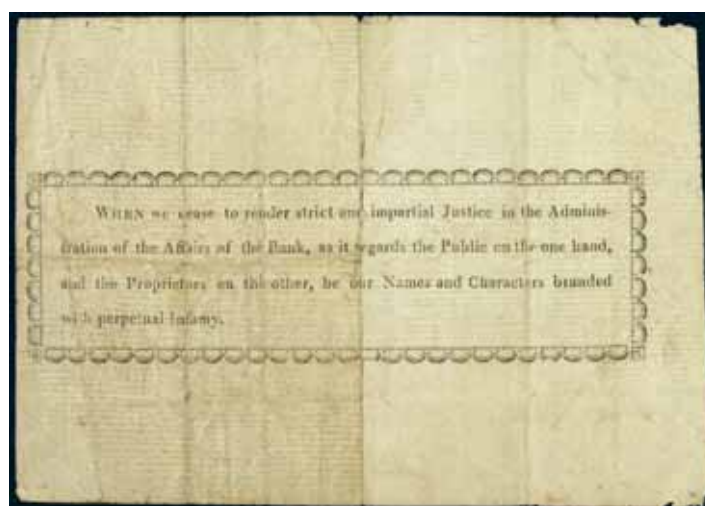 WHEN we cease to render strict and impartial Justice in the Adminis-
tration of the Affairs of the Bank, as it regards the Public on the one hand,
and the Proprietors on the other, be our Names and Characters branded
with perpetual Infamy.